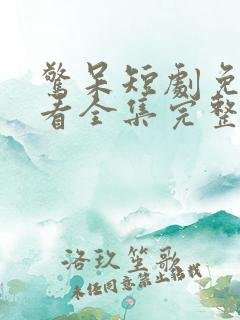 驚呆短劇免
看全集完整
洛玖笙歌
未经同意禁止转载